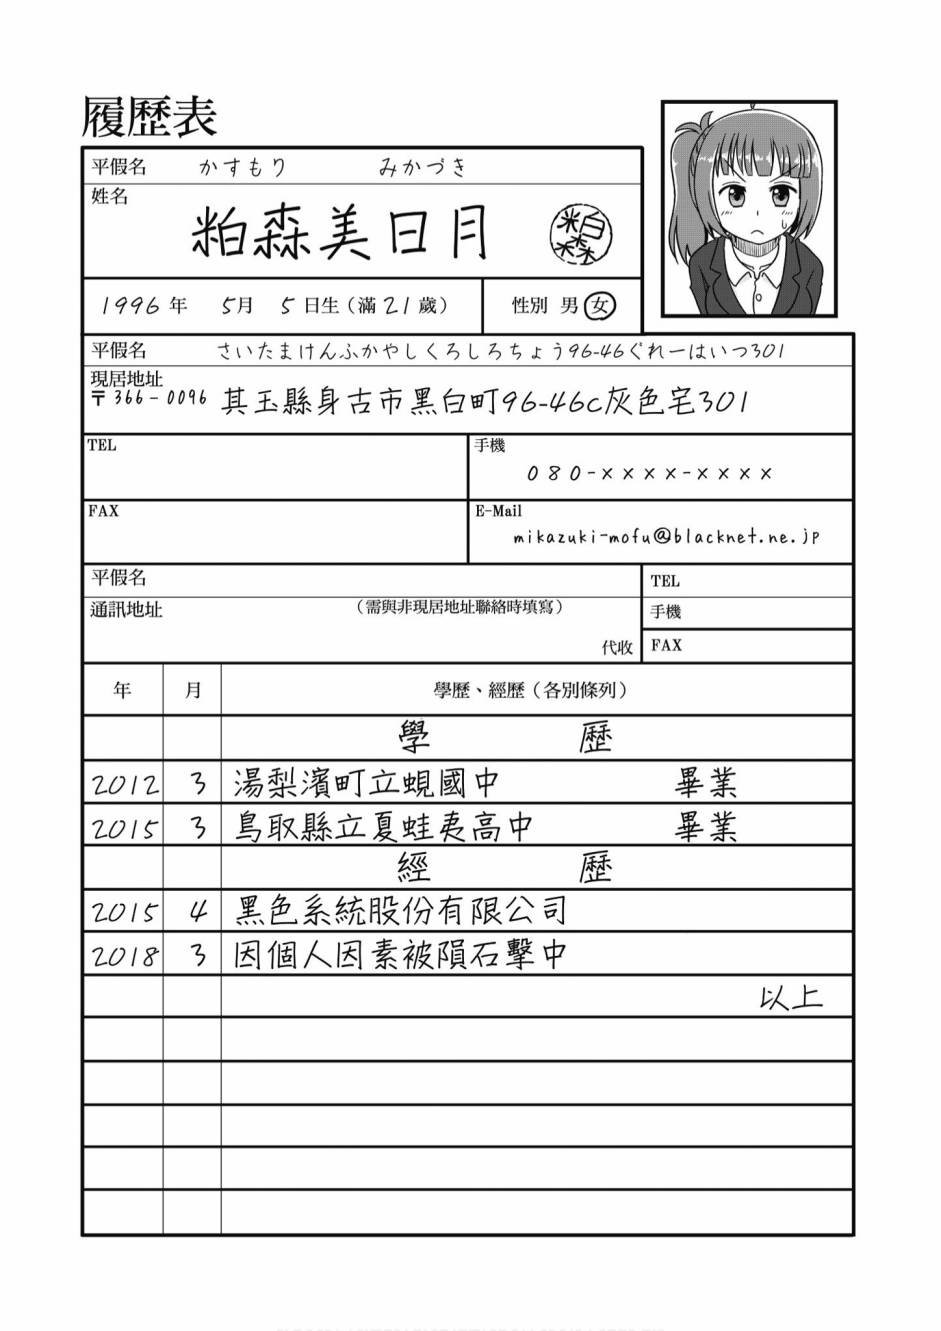 履歷表
平假名 かすもり みかづき
姓名
粕森美日月 粕森
1996年 5月 5日生(滿21歲) 性別 男 女
平假名 さいたまけんふかやしくろしろちょう96-46ぐれーはいつ301
現居地址
〒366-0096 其玉縣身古市黑白町96-46c灰色宅301
TEL 手機
080-××××-××××
FAX E-Mail
mikazuki-mofu@blacknet.ne.jp
平假名 TEL
通訊地址 (需與非現居地址聯絡時填寫) 手機
代收 FAX
年 月 學歷、經歷(各別條列)
學 歷
2012 3 湯梨濱町立蜆國中 畢業
2015 3 鳥取縣立夏蛙夷高中 畢業
經 歷
2015 4 黑色系統股份有限公司
2018 3 因個人因素被隕石擊中
以上